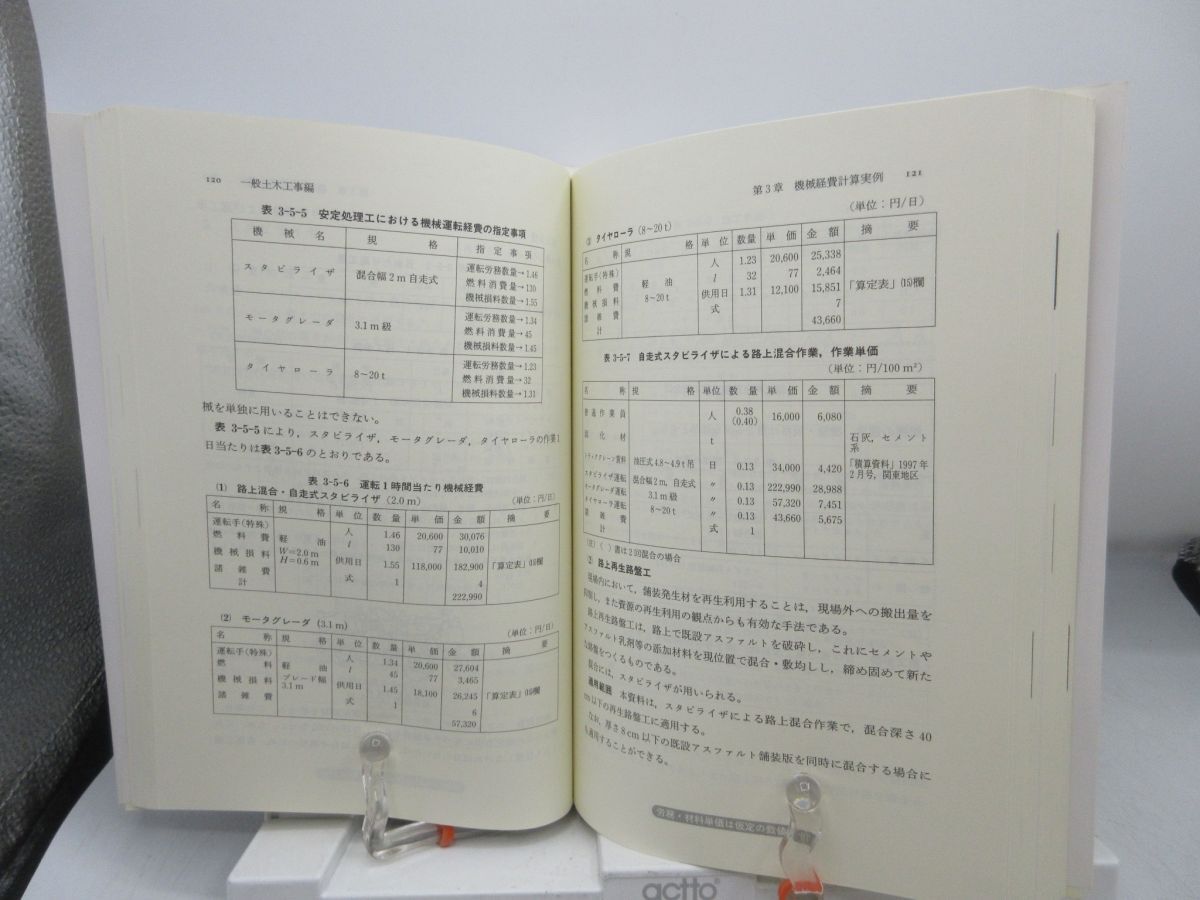 120 一般土木工事編
表 3-5-5 安定処理工における機械運転経費の指定事項
機械名 規格 指定事項
スタビライザ 混合幅2m自走式 運転労務数量→1.46
燃料消費量→130
機械損料数量→1.55
モータグレーダ 3.1m級 運転労務数量→1.34
燃料消費量→45
機械損料数量→1.45
タイヤローラ 8~20t 運転労務数量→1.23
燃料消費量→32
機械損料数量→1.31
械を単独に用いることはできない。
表 3-5-5により，スタビライザ，モータグレーダ，タイヤローラの作業1
日当たりは表3-5-6のとおりである。
表 3-5-6 運転1時間当たり機械経費
(1) 路上混合・自走式スタビライザ（2.0m） （単位：円/日）
名称 規格 単位 数量 単価 金額 摘要
運転手(特殊) 人 1.46 20,600 30,076
燃料費 軽油 l 130 77 10,010
機械損料 W=2.0m H=0.6m 供用日 1.55 118,000 182,900 「算定表」⒂欄
諸雑費 式 1 4
計 222,990
(2) モータグレーダ（3.1m） （単位：円/日）
名称 規格 単位 数量 単価 金額 摘要
運転手(特殊) 人 1.34 20,600 27,604
燃料 軽油 l 45 77 3,465
機械損料 ブレード幅 3.1m 供用日 1.45 18,100 26,245 「算定表」⒂欄
諸雑費 式 1 6
57,320
第3章 機械経費計算実例 121
（単位：円/日）
タイヤローラ（8~20t）
名称 規格 単位 数量 単価 金額 摘要
運転手(特殊) 人 1.23 20,600 25,338
燃料費 軽油 l 32 77 2,464
機械損料 8~20t 供用日 1.31 12,100 15,851 「算定表」⒂欄
諸雑費 式 7
計 43,660
表 3-5-7 自走式スタビライザによる路上混合作業，作業単価
（単位：円/100m²）
名称 規格 単位 数量 単価 金額 摘要
普通作業員 人 0.38 (0.40) 16,000 6,080
固化材 t 石灰，セメント系
トラッククレーン賃料 油圧式4.8~4.9t吊 日 0.13 34,000 4,420 「積算資料」1997年2月号，関東地区
スタビライザ運転 混合幅2m，自走式 〃 0.13 222,990 28,988
モータグレーダ運転 3.1m級 〃 0.13 57,320 7,451
タイヤローラ運転 8~20t 〃 0.13 43,660 5,675
諸雑費 式 1
計
(注)（ ）書は2回混合の場合
② 路上再生路盤工
現場内において，舗装発生材を再生利用することは，現場外への搬出量を
抑制し，また資源の再生利用の観点からも有効な手法である。
路上再生路盤工は，路上で既設アスファルトを破砕し，これにセメントや
アスファルト乳剤等の添加材料を現位置で混合・敷均しし，締め固めて新た
な路盤をつくるものである。
混合には，スタビライザが用いられる。
適用範囲 本資料は，スタビライザによる路上混合作業で，混合深さ40
cm以下の再生路盤工に適用する。
なお，厚さ8cm以下の既設アスファルト舗装版を同時に混合する場合に
も適用することができる。
労務・材料単価は仮定の数値
actto